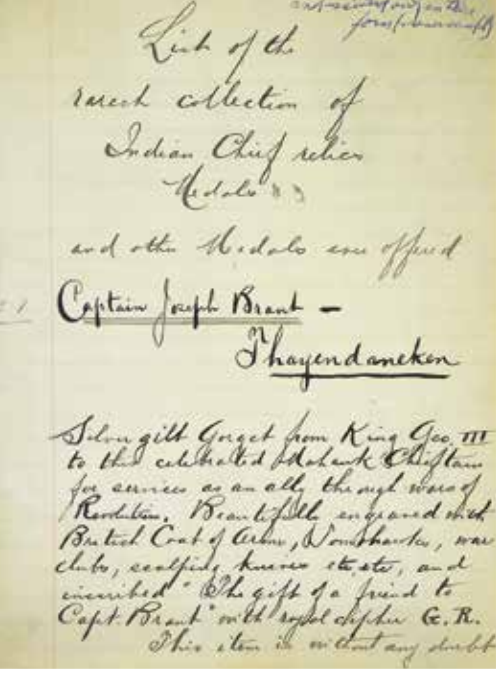 form
List of the
rarest collection of
Indian Chief relics
Medals
and other Medals ever offered
Captain Joseph Brant –
Thayendaneken
Silver gilt Gorget from King Geo. III
to this celebrated Mohawk Chieftain
for services as an ally through wars of
Revolution. Beautifully engraved with
British Coat of Arms, Tomahawks, war
clubs, scalping knives etc etc, and
inscribed "The gift of a friend to
Capt. Brant" with royal cipher G. R.
This item is without any doubt